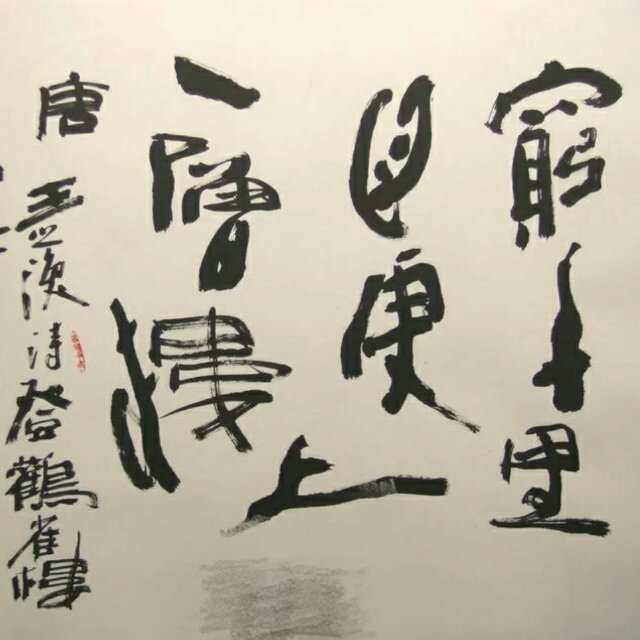 窮千里
目更上
一層樓
唐王之渙詩登鸛雀樓